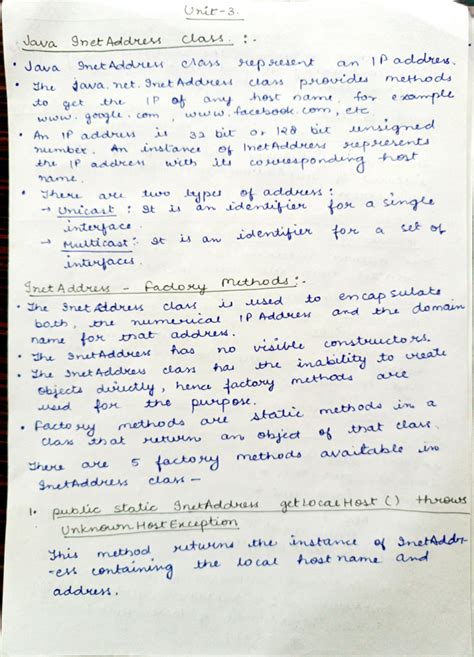 Unit-3.
Java InetAddress class. :-
• Java InetAddress class represent an IP address.
• The java.net.InetAddress class provides methods
to get the IP of any host name, for example
www.google.com, www.facebook.com, etc
• An IP address is 32 bit or 128 bit unsigned
number. An instance of InetAddress represents
the IP address with its corresponding host
name.
• There are two types of address:
→ Unicast : It is an identifier for a single
interface.
→ Multicast : It is an identifier for a set of
interfaces.
InetAddress - Factory Methods :-
• The InetAddress class is used to encapsulate
both, the numerical IP Address and the domain
name for that address.
• The InetAddress has no visible constructors.
• The InetAddress class has the inability to create
objects directly, hence factory methods are
used for the purpose.
• Factory methods are static methods in a
class that return an object of that class.
There are 5 factory methods available in
InetAddress class -
1. public static InetAddress getLocalHost() throws
UnknownHostException
This method returns the instance of InetAddr-
-ess containing the local host name and
address.